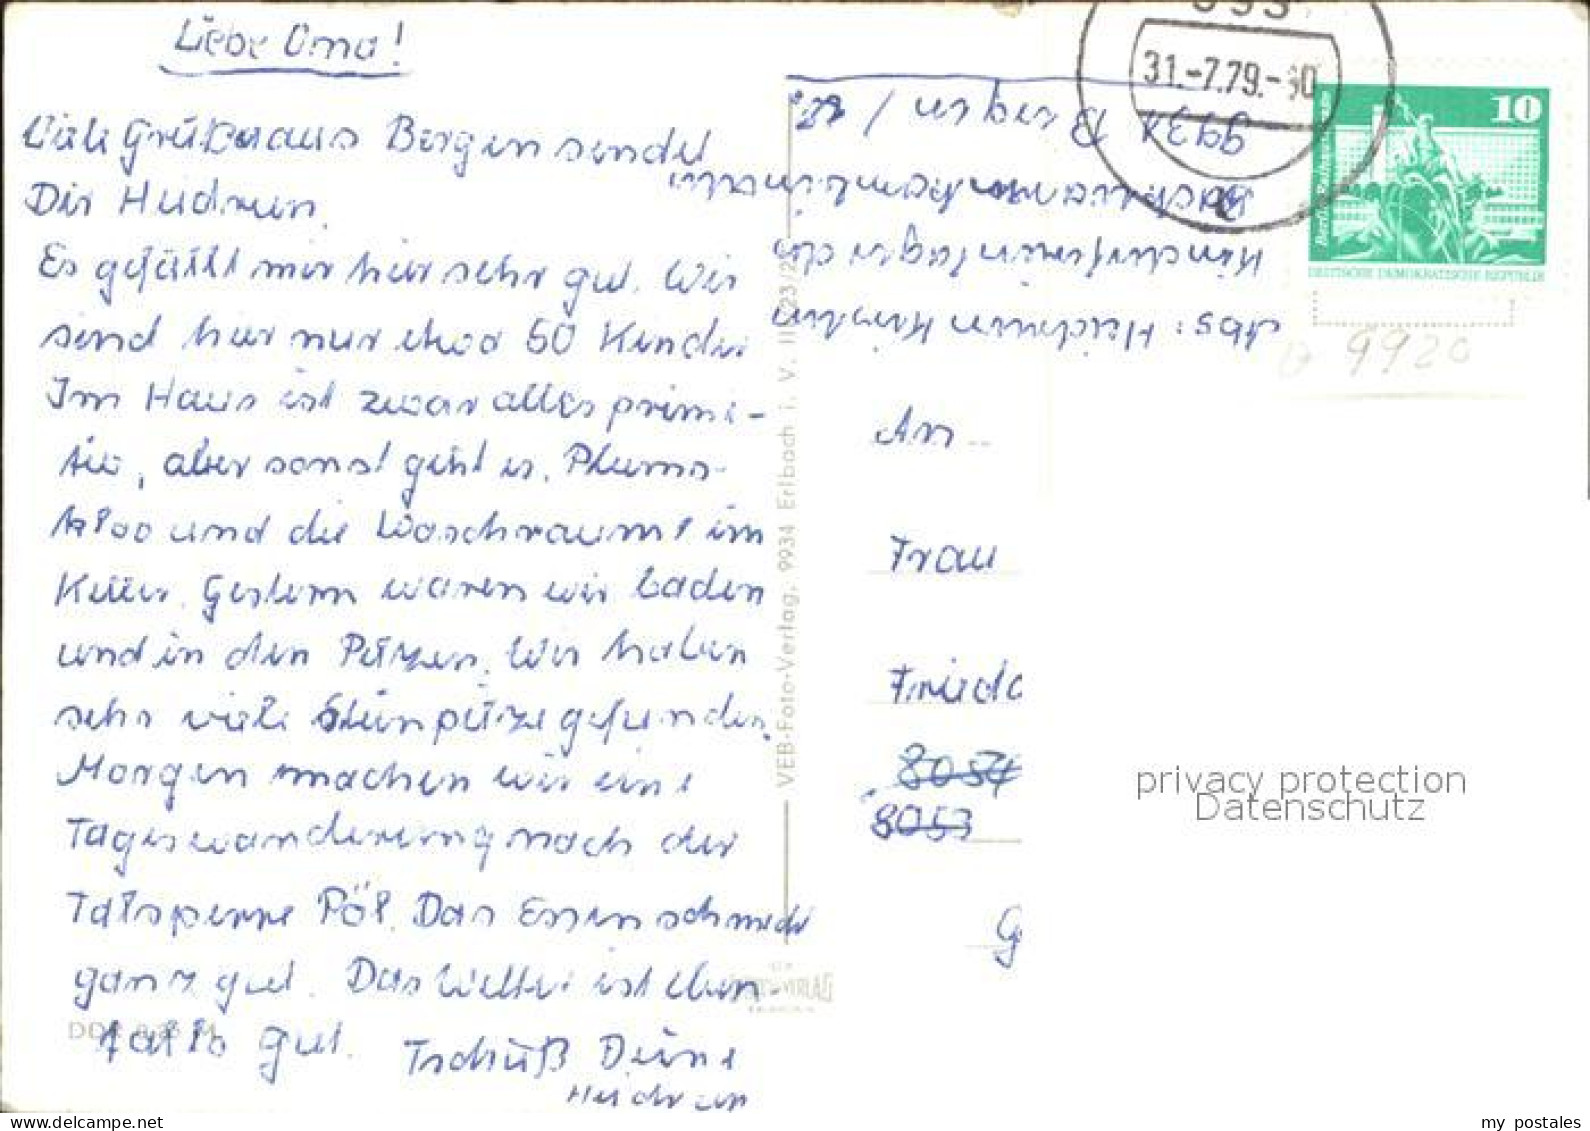 Liebe Oma!
Viele Grüße aus Bergen sendet
Dir Heidrun.
Es gefällt mir hier sehr gut. Wir
sind hier nur etwa 50 Kinder
Im Haus ist zwar alles primi-
tiv, aber sonst geht es. Plums-
klos und die Waschräume im
Keller. Gestern waren wir baden
und in den Pilzen. Wir haben
sehr viele Steinpilze gefunden.
Morgen machen wir eine
Tageswanderung nach der
Talsperre Pöl. Das Essen schmeckt
ganz gut. Das Wetter ist eben-
falls gut. Tschüß Deine
Heidrun
DDR
VEB-Foto-Verlag, 9934 Erlbach i. V. III/23/2
Abs: Heidrun
Kinderferienlager der
9931 Bergen /
31.-7.79.-
10
Berlin, Rathausstraße
DEUTSCHE DEMOKRATISCHE REPUBLIK
9920
An
Frau
Frieda
8054
8053
G
privacy protection
Datenschutz
my postales